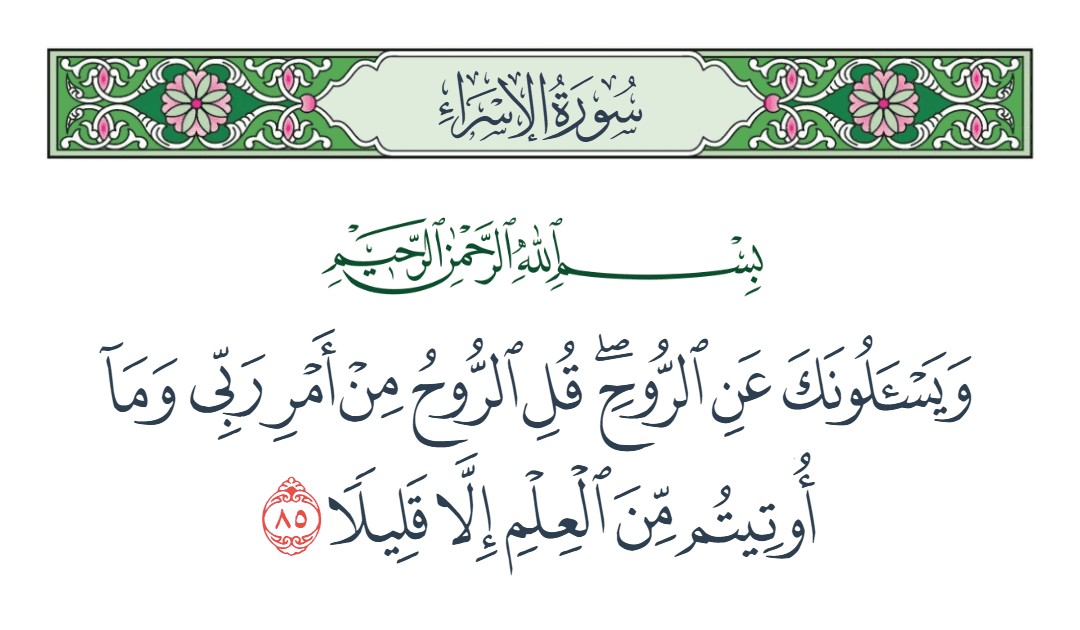 سُورَةُ الإِسْرَاءِ
بِسْمِ ٱللَّهِ ٱلرَّحْمَٰنِ ٱلرَّحِيمِ
وَيَسْـَٔلُونَكَ عَنِ ٱلرُّوحِۖ قُلِ ٱلرُّوحُ مِنْ أَمْرِ رَبِّى وَمَآ
أُوتِيتُم مِّنَ ٱلْعِلْمِ إِلَّا قَلِيلًا ٨٥